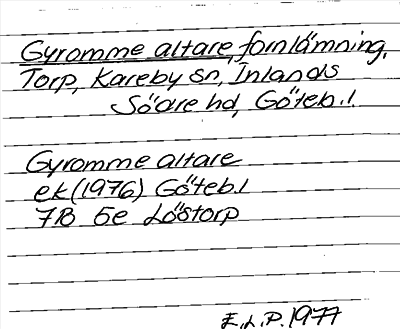 Gyromme altare, fornlämning,
Torp, Kareby sn, Inlands
Södre hd, Göteb.l.
Gyromme altare
ek (1976) Göteb.l
7B 5e Löstorp
E.L.P. 1977